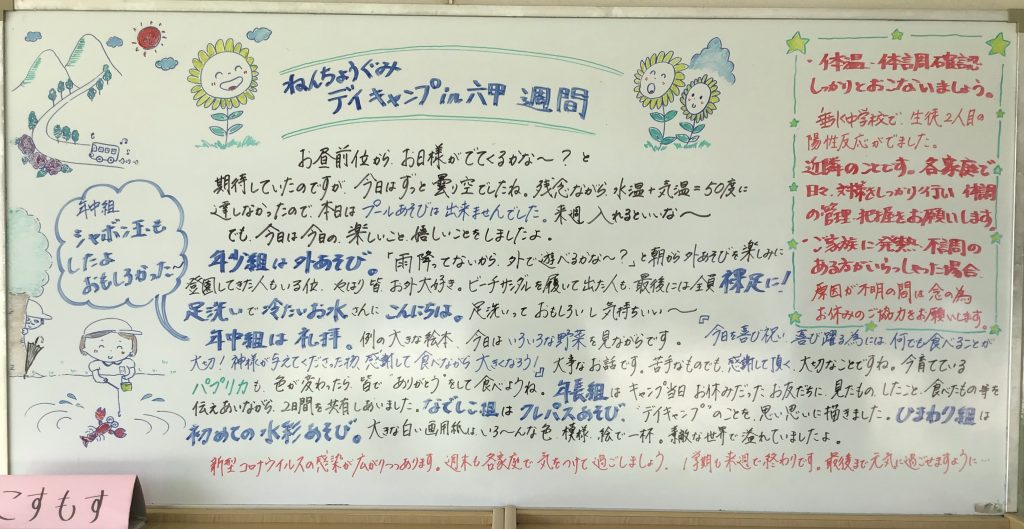 ねんちょうぐみ
デイキャンプin六甲 週間
お昼前位から、お日様がでてくるかな〜？と
期待していたのですが、今日はずっと曇り空でしたね。残念ながら水温+気温=50度に
達しなかったので、本日はプールあそびは出来ませんでした。来週、入れるといいな〜
でも、今日は今日の、楽しいこと、嬉しいことをしましたよ。
年少組は外あそび。「雨、降ってないから、外で遊べるかな〜？」と朝から外あそびを楽しみに
登園してきた人もいる位、やはり皆お外大好き。ビーチサンダルを履いて出た人も、最後には全員裸足に！
足洗いで冷たいお水さんにこんにちは。足洗いっておもしろいし気持ちいい〜
年中組は礼拝。例の大きな絵本、今日はいろいろな野菜を見ながらです。『今日を喜び祝い、喜び躍る為には、何でも食べることが
大切！神様が与えてくださった物、感謝して食べながら大きくなろう！』大事なお話です。苦手なものでも、感謝して頂く、大切なことですね。今育てている
パプリカも、色が変わったら、皆で“ありがとう”をして食べようね。年長組はキャンプ当日お休みだったお友だちに、見たもの、したこと、食べたもの等を
伝えあいながら、2日間を共有しあいました。なでしこ組はクレパスあそび、“デイキャンプ”のことを、思い思いに描きました。ひまわり組は
初めての水彩あそび。大きな白い画用紙は、いろ〜んな色、模様、絵で一杯。素敵な世界で溢れていましたよ。
新型コロナウイルスの感染が広がりつつあります。週末も各家庭で気をつけて過ごしましょう。1学期も来週で終わりです。最後まで元気に過ごせますように…
年中組
シャボン玉も
したよ
おもしろかった〜
・体温 体調確認
しっかりとおこないましょう。
垂水中学校で、生徒2人目の
陽性反応がでました。
近隣のことです。各家庭で
日々、対様をしっかり行い 体調
の管理・把握をお願いします。
・ご家族に発熱・不調の
ある方がいらっしゃった場合、
原因が不明の間は念の為
お休みのご協力をお願いします。
こすもす